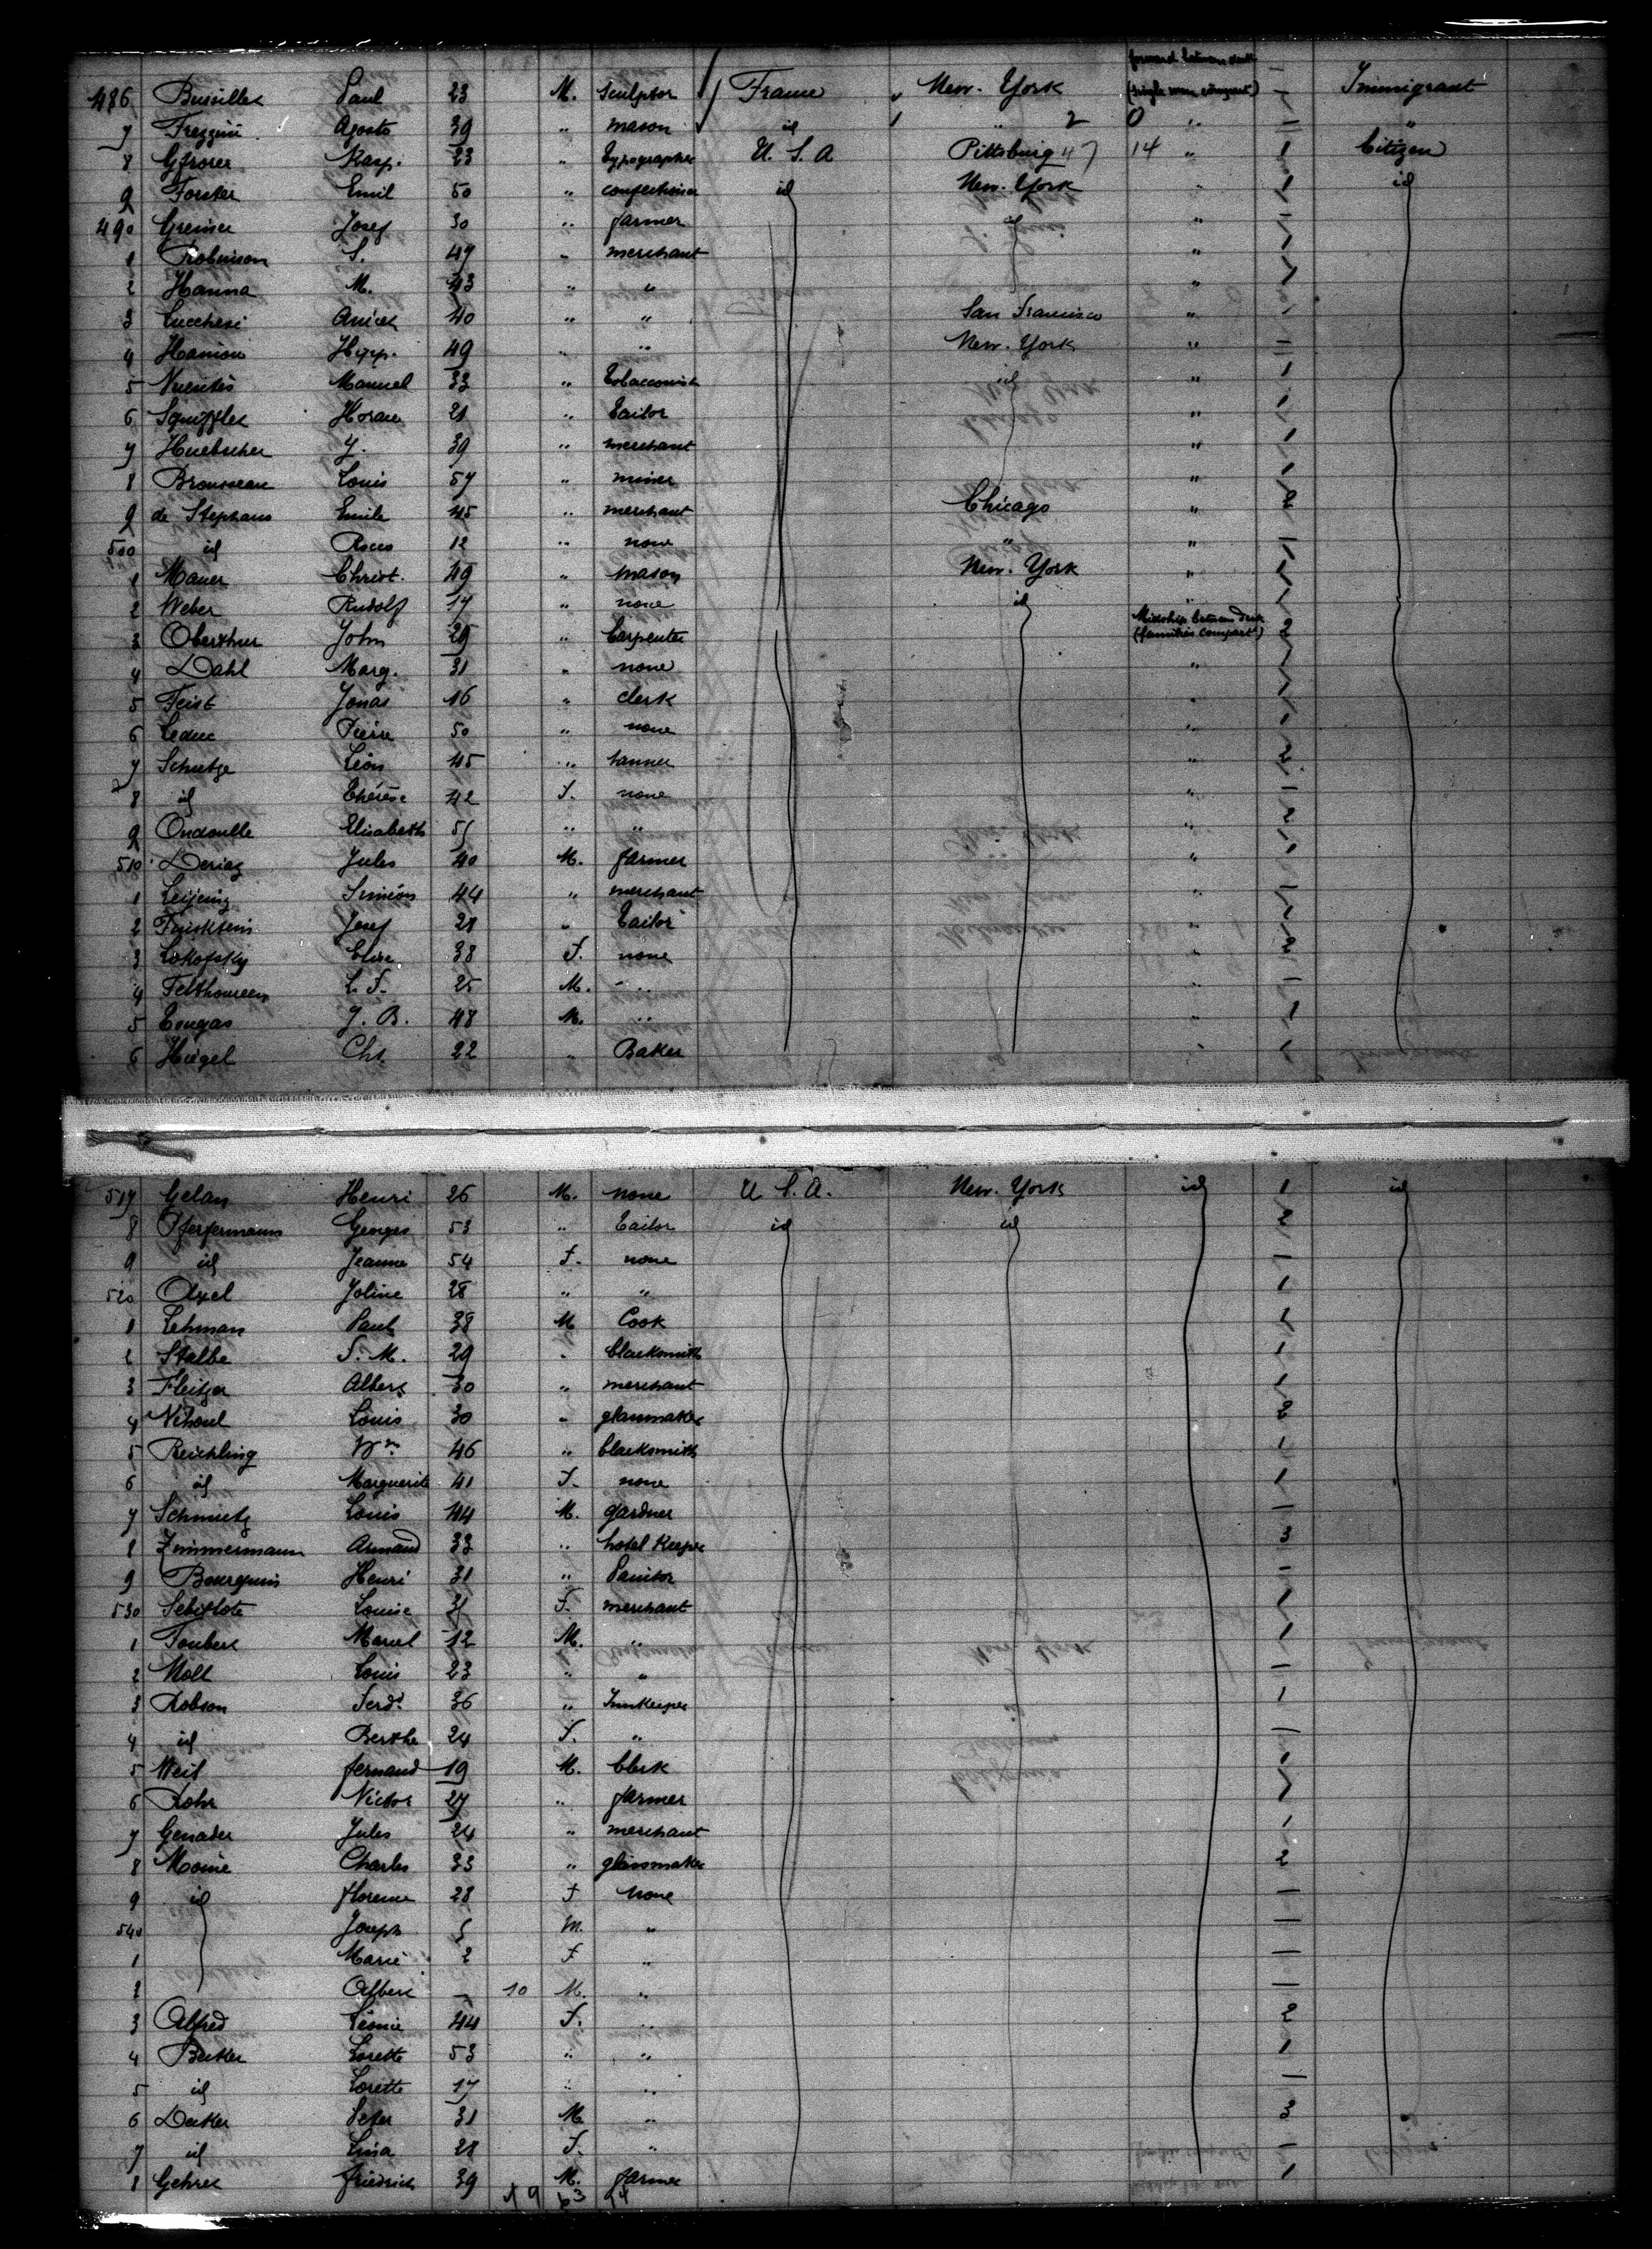 forward between deck
486 Paul 23 M. Sculptor France New-York (single men compart) 1 Immigrant
7 Frezzini Agosto 39 " mason id " 2 0 " 1 "
8 Gfrorer Kasp. 23 " typographer U. S. A Pittsburg 47 14 " 1 Citizen
9 Forster Emil 50 " confectioner id New-York " 1 id
490 Greiner Josef 30 " farmer id " 1
1 Robinson S. 47 " merchant " 1
2 Hanna M. 43 " " " 1
3 Lucchesi 40 " " San Francisco " 1
4 Hamon Hipp. 49 " " New-York " 1
5 Manuel 33 " Tobacconist id " 1
6 Horace 21 " Tailor " 1
7 Huebscher J. 39 " merchant " 1
8 Brousseau Louis 57 " miner " 1
9 de Stephano Emile 45 " merchant Chicago " 2
500 id 12 " none " " 1
1 Mauer Christ. 49 " mason New-York " 1
2 Weber Rudolf 17 " none id " 1
3 Oberthur John 29 " Carpenter Midship between deck (families compart) 2
4 Dahl Marg. 31 " none " 1
5 Feist Jonas 16 " clerk " 1
6 Leduc Pierre 50 " none " 1
7 Schutze Léon 45 " tanner " 2
8 id Thérèse 42 F. none " 1
9 Elisabeth 51 " " " 2
510 Deriaz Jules 40 M. farmer " 1
1 Siméon 44 " merchant " 1
2 Josef 21 " Tailor " 1
3 Lokofsky Elise 38 F. none " 2
4 L. F. 25 M. " " 1
5 Tougas J. B. 48 M. " " 1
6 Hugel Chs. 22 " Baker " 1
517 Gelan Henri 26 M. none U. S. A. New-York id 1 id
8 Pferfermann Georges 53 " Tailor id id 2
9 id Jeanne 54 F. none 1
520 Axel Joline 28 " " 1
1 Lehman Paul 38 M Cook 2
2 Stalbe F. M. 29 " blacksmith 1
3 Albert 30 " merchant 1
4 Nihoul Louis 30 " glassmaker 2
5 Reichling Wm. 46 " blacksmith 1
6 id Marguerite 41 F. none 1
7 Schmitz Louis 44 M. gardner 1
8 Zimmermann Armand 33 " hotel Keeper 3
9 Bourquin Henri 31 " 1
530 Louise 31 F. merchant 1
1 Joubert Marcel 12 M. " 1
2 Moll Louis 23 " " 1
3 Robson Ferd. 36 " Innkeeper 1
4 id Berthe 24 F. " 1
5 Weil fernand 19 M. Clerk 1
6 Rohr Victor 27 " farmer 1
7 Genader Jules 24 " merchant 1
8 Moine Charles 33 " glassmaker 2
9 id florence 28 F none 1
540 Joseph 5 M. " 1
1 Marie 2 F " 1
2 Albert - 10 M. " 1
3 Alfred Léonie 44 F. " 2
4 Becker Lorette 53 " " 1
5 id Lorette 17 " " 1
6 Decker Peter 31 M. " 3
7 id Lina 28 F. " 1
8 Gehret friedrich 39 M. farmer 1